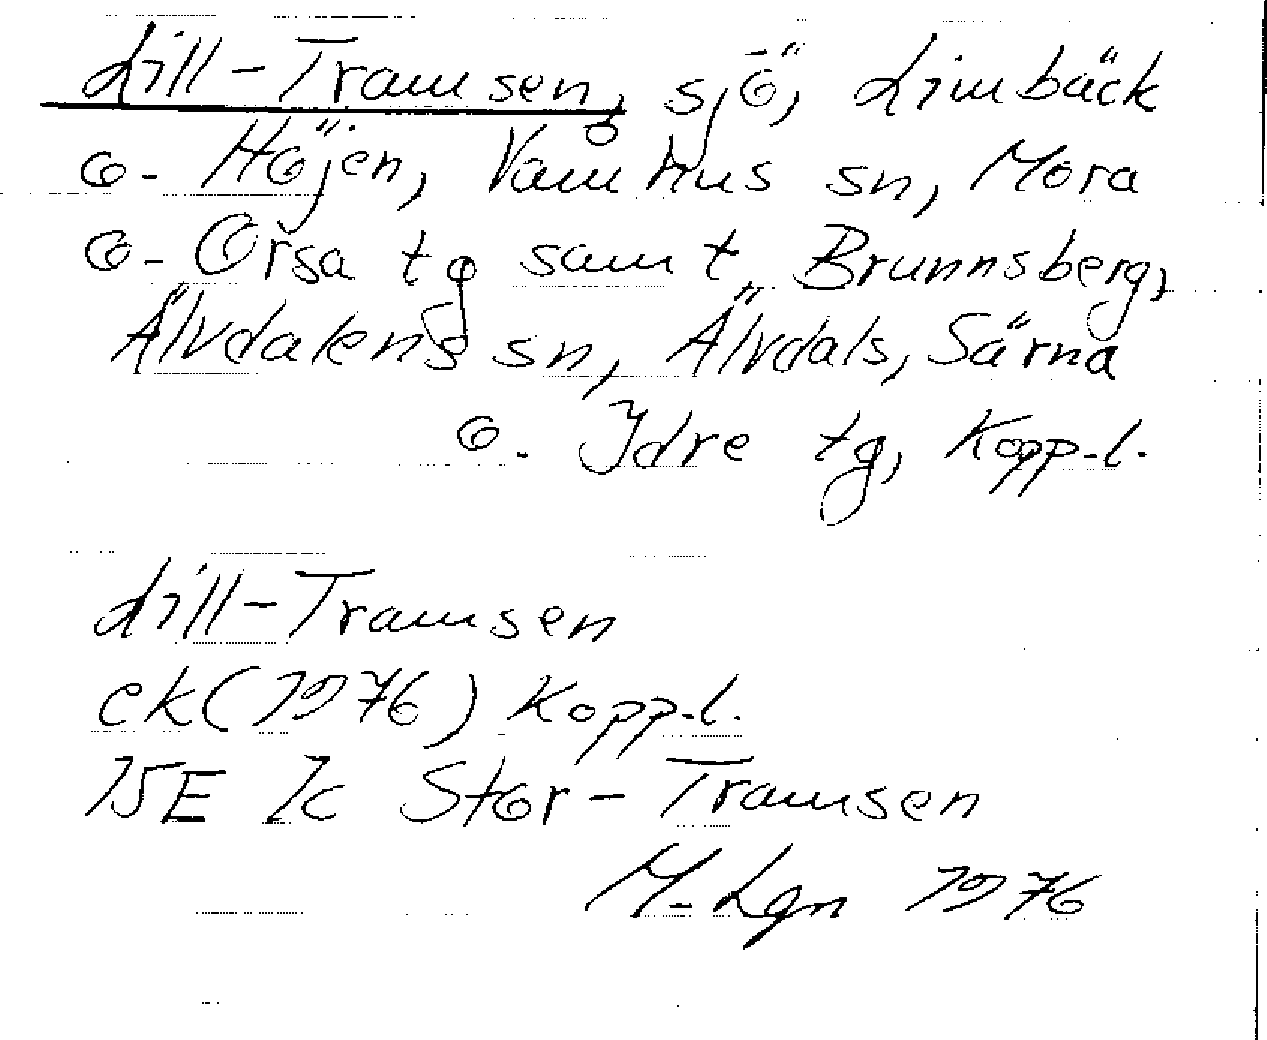 Lill-Tramsen, sjö, Limbäck
o. Höjen, Våmhus sn, Mora
o. Orsa tg samt Brunnsberg,
Älvdalens sn, Älvdals, Särna
o. Idre tg, Kopp.l.
Lill-Tramsen
ek (1976) Kopp.l.
15E 7c Stor-Tramsen
M.Lgn 1976